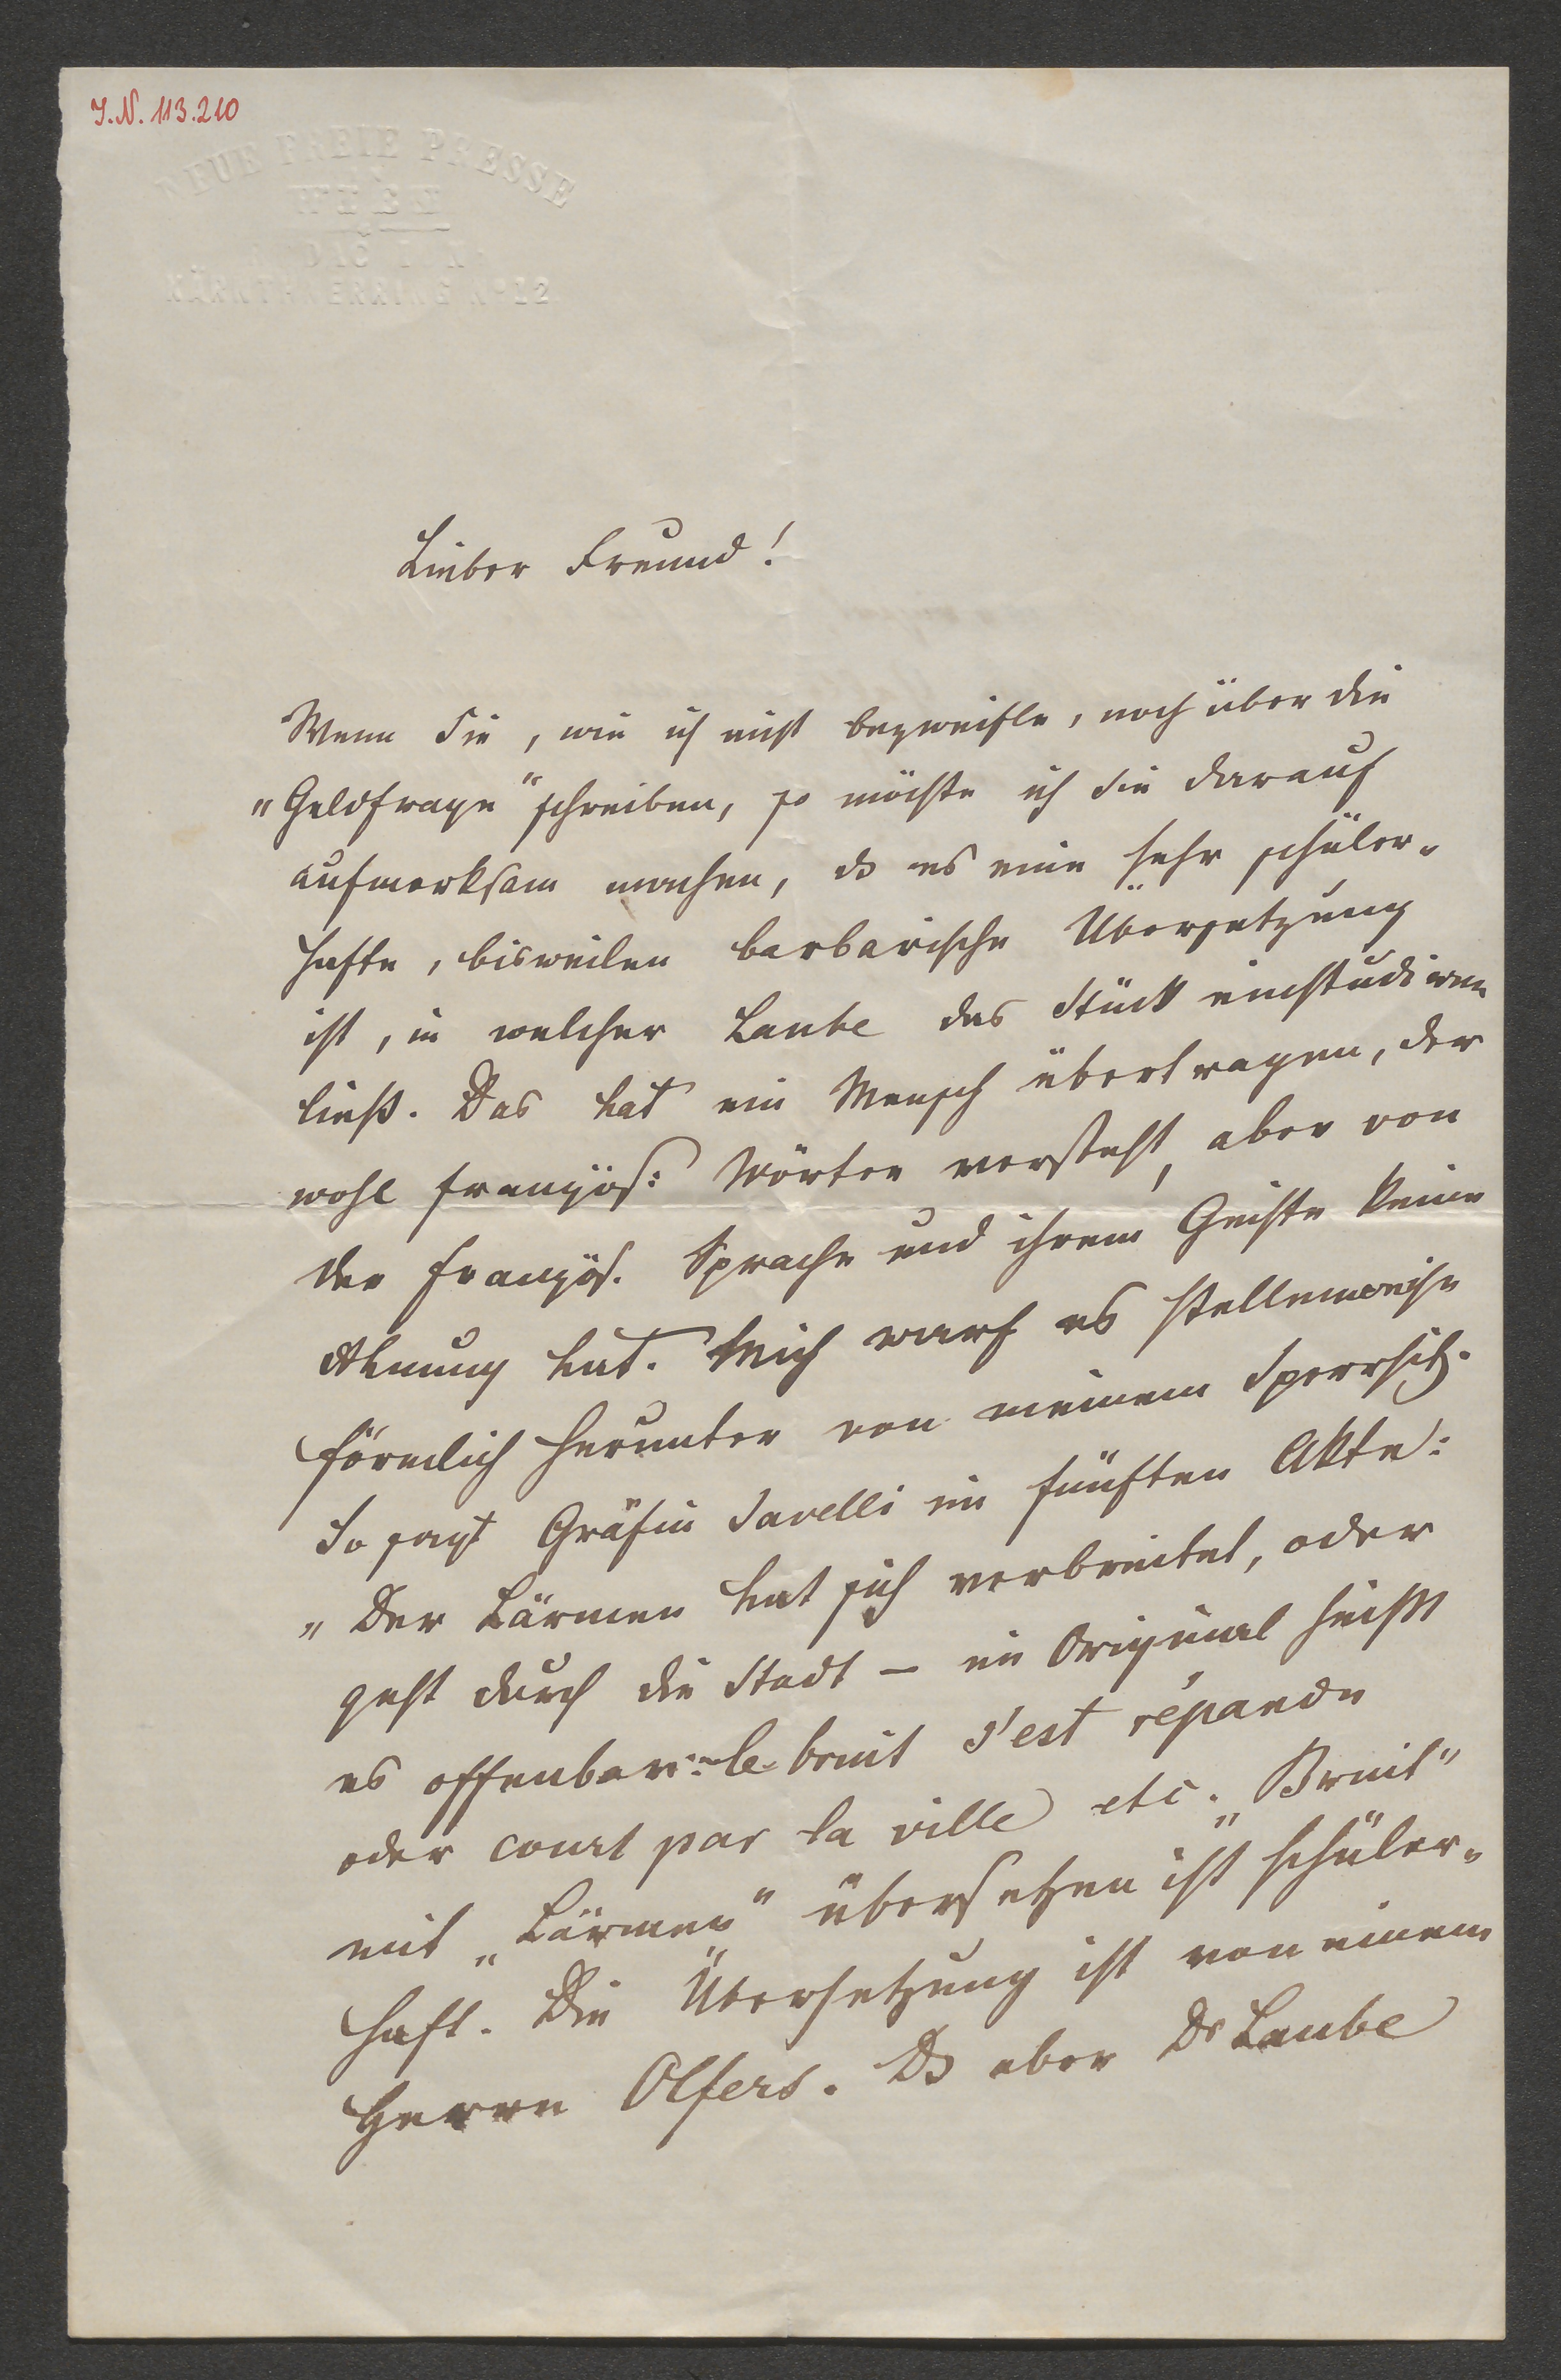 I.N. 113.210
NEUE FREIE PRESSE
WIEN
KÄRNTHNERRING No 12
Lieber Freund!
Wenn Sie, wie ich nicht bezweifle, noch über die
„Geldfrage" schreiben, so möchte ich Sie darauf
aufmerksam machen, ds es eine sehr schüler-
hafte, bisweilen barbarische Übersetzung
ist, in welcher Laube das Stück einstudiren
ließ. Das hat ein Mensch übertragen, der
wohl französ: Wörter versteht, aber von
der französ. Sprache und ihrem Geiste keine
Ahnung hat. Mich warf es stellenweise
förmlich herunter von meinem Sperrsitz.
So sagt Gräfin Savelli im fünften Akte:
„Der Lärmen hat sich verbreitet, oder
geht durch die Stadt – im Original heißt
es offenbar: le bruit s'est répandu
oder court par la ville etc. „Bruit"
mit „Lärmen" übersetzen ist schüler-
haft. Die Übersetzung ist von einem
Herrn Olfers. Ds aber Dr Laube